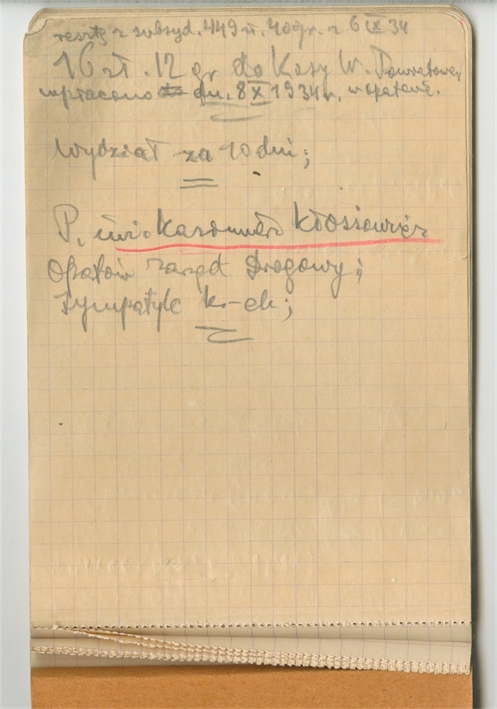 resztę z subsyd. 449 zł. 40 gr. z 6 IX 34
16 zł. 12 gr do Kasy W. Powiatowej
wpłacono dn. 8 X 1934 r. w Opatowie.
Wydział za 10 dni;
P. inż. Kazimierz Kłossowicz
Opatów zarząd Drogowy;
sympatyk k-ch;